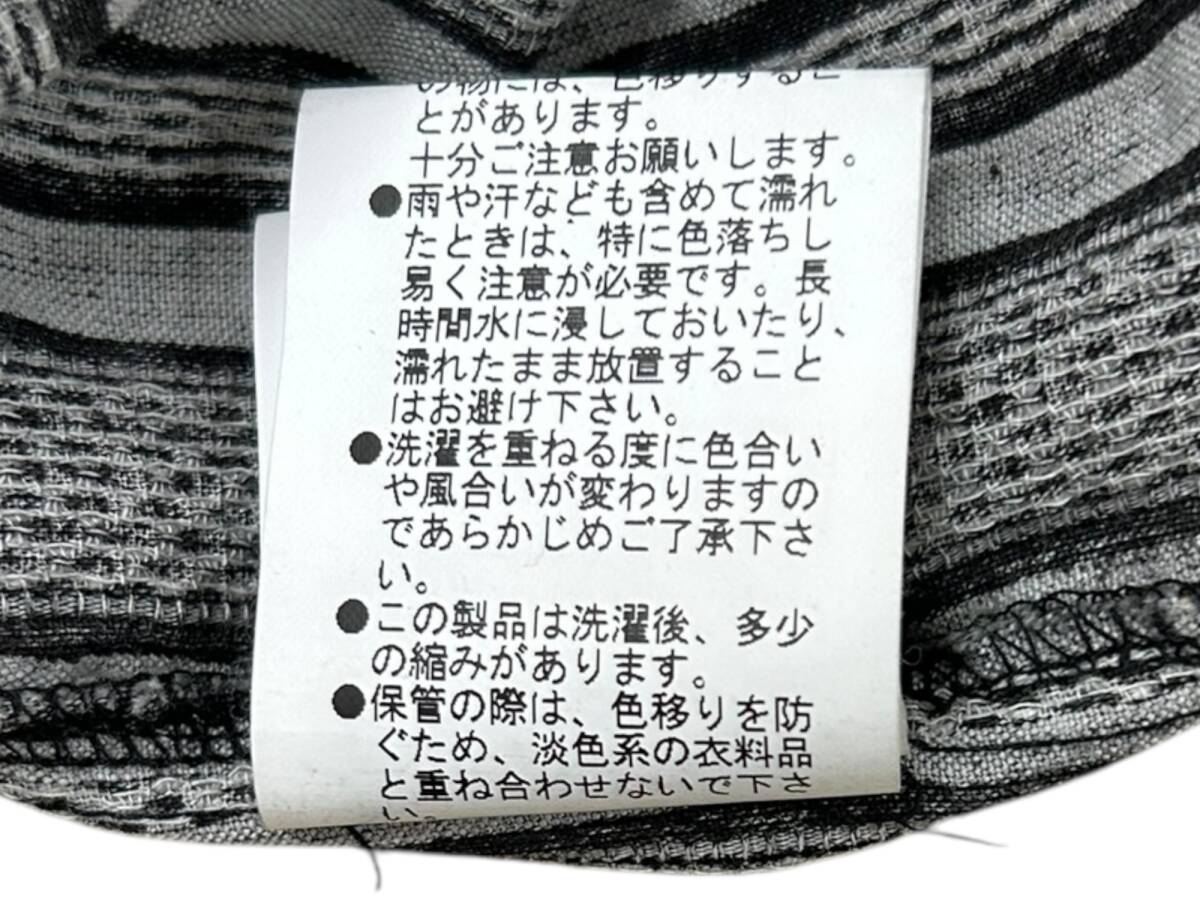 の物には、色移りするこ
とがあります。
十分ご注意お願いします。
●雨や汗なども含めて濡れ
たときは、特に色落ちし
易く注意が必要です。長
時間水に浸しておいたり、
濡れたまま放置すること
はお避け下さい。
●洗濯を重ねる度に色合い
や風合いが変わりますの
であらかじめご了承下さ
い。
●この製品は洗濯後、多少
の縮みがあります。
●保管の際は、色移りを防
ぐため、淡色系の衣料品
と重ね合わせないで下さ
い。